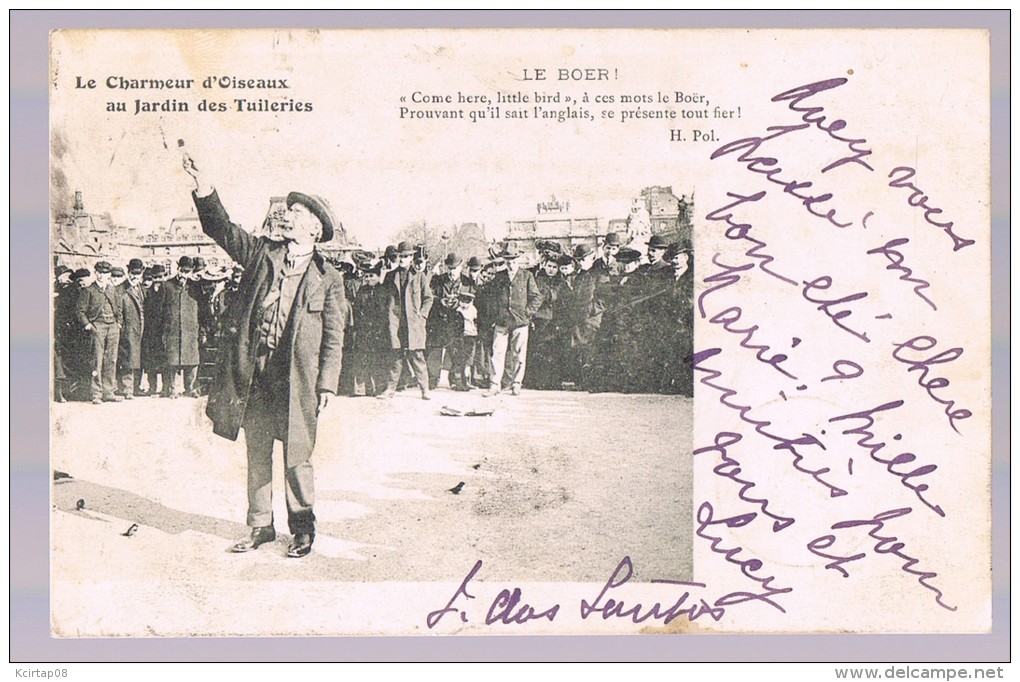 Le Charmeur d'Oiseaux
au Jardin des Tuileries
LE BOER !
« Come here, little bird », à ces mots le Boër,
Prouvant qu'il sait l'anglais, se présente tout fier !
H. Pol.
Avez vous
passé un
bon été chère
Marie. a
mille
amitiés pour
vous et
Lucy
J. dos Santos
Kcirtap08